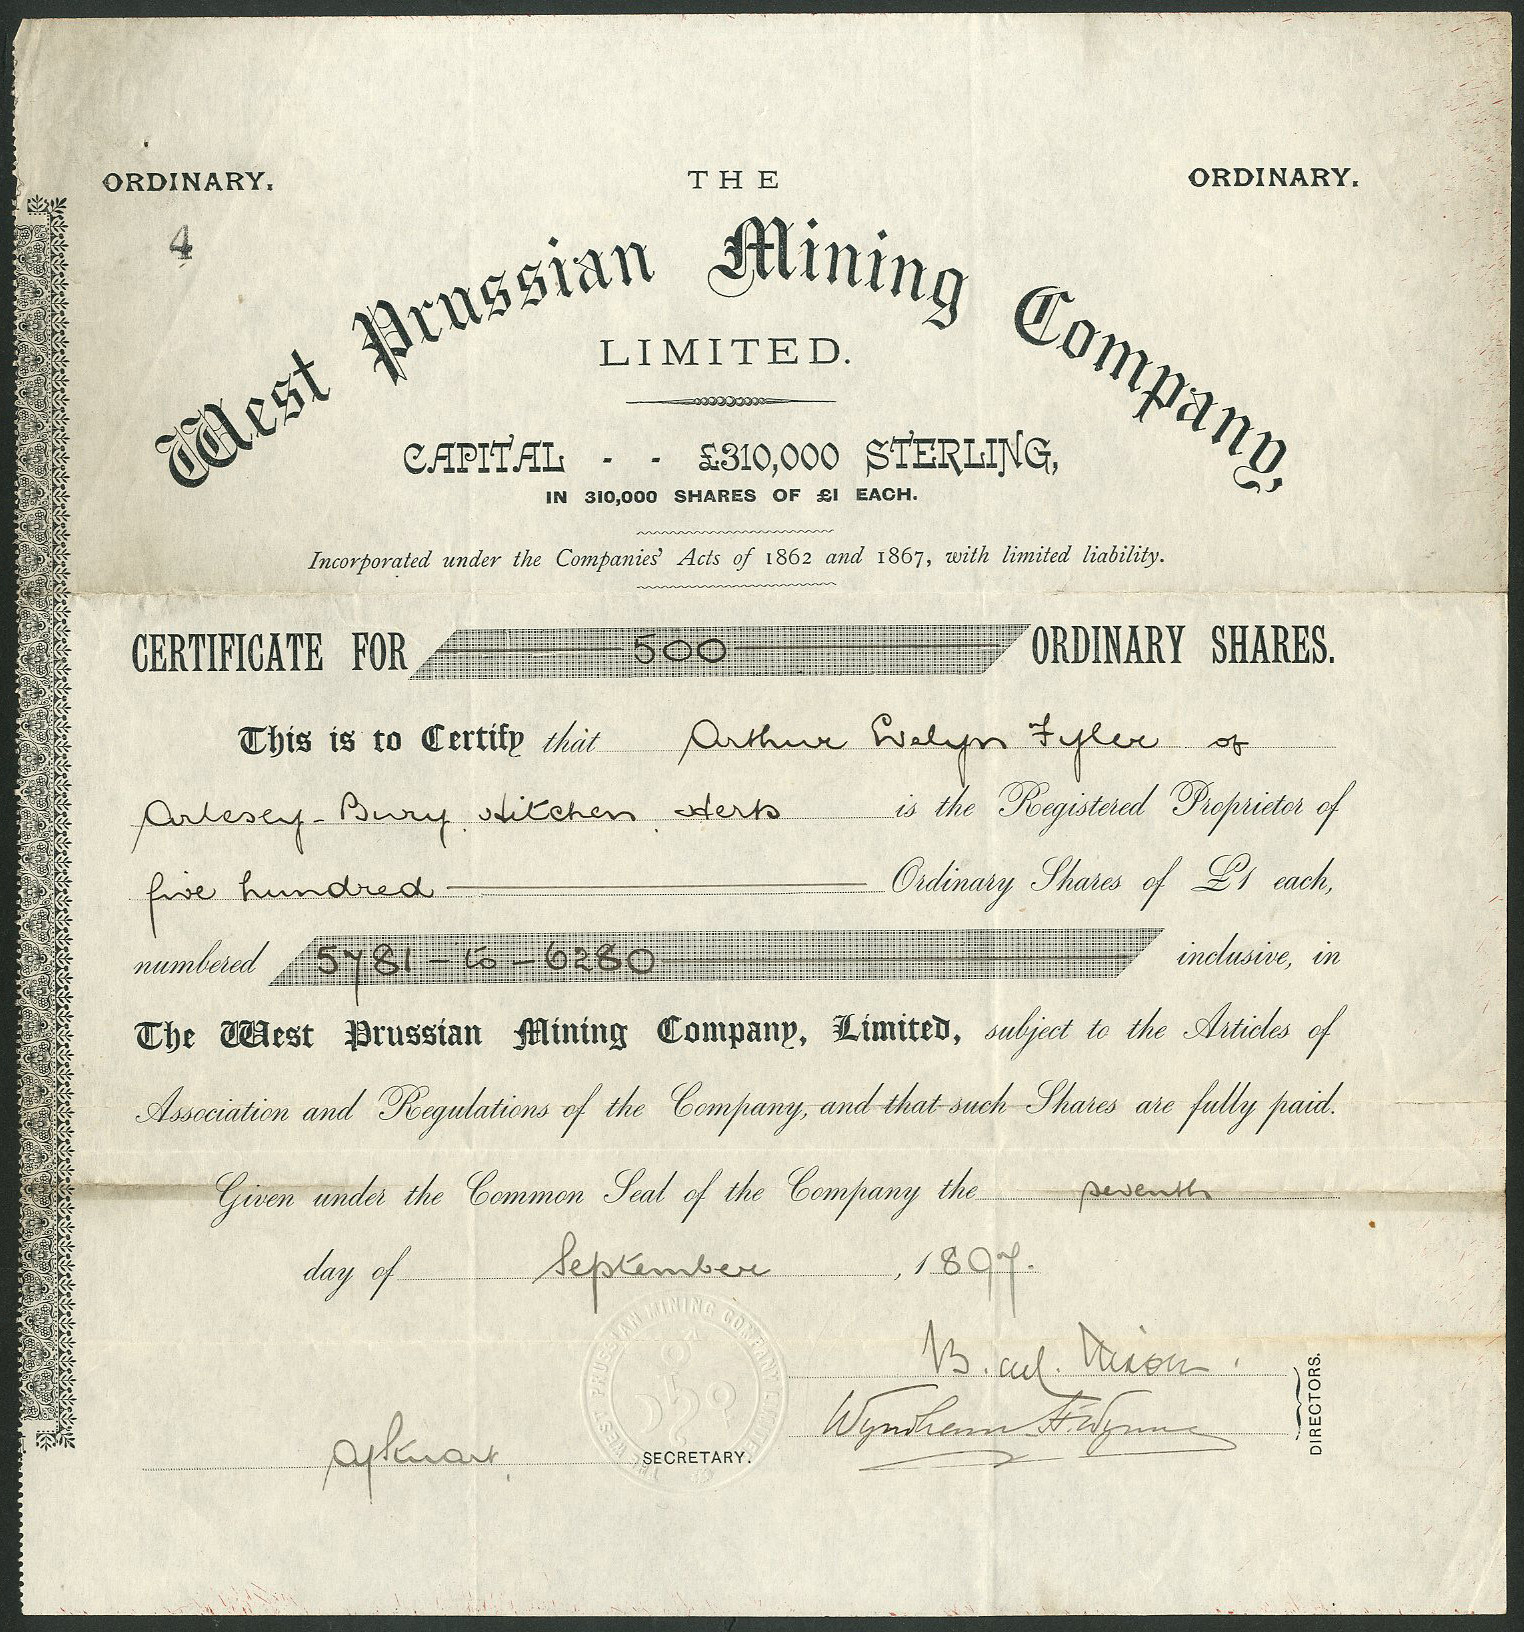 ORDINARY. THE ORDINARY.
4
West Prussian Mining Company,
LIMITED.
CAPITAL - - £310,000 STERLING,
IN 310,000 SHARES OF £1 EACH.
Incorporated under the Companies' Acts of 1862 and 1867, with limited liability.
CERTIFICATE FOR 500 ORDINARY SHARES.
This is to Certify that Arthur Evelyn Fyler of
Arlesey-Bury, Hitchen, Herts is the Registered Proprietor of
five hundred Ordinary Shares of £1 each,
numbered 5781 - to - 6280 inclusive, in
The West Prussian Mining Company, Limited, subject to the Articles of
Association and Regulations of the Company, and that such Shares are fully paid.
Given under the Common Seal of the Company the seventh
day of September, 1897.
THE WEST PRUSSIAN MINING COMPANY LIMITED
B. Nixon.
Wyndham F. Wynne
DIRECTORS.
SECRETARY.